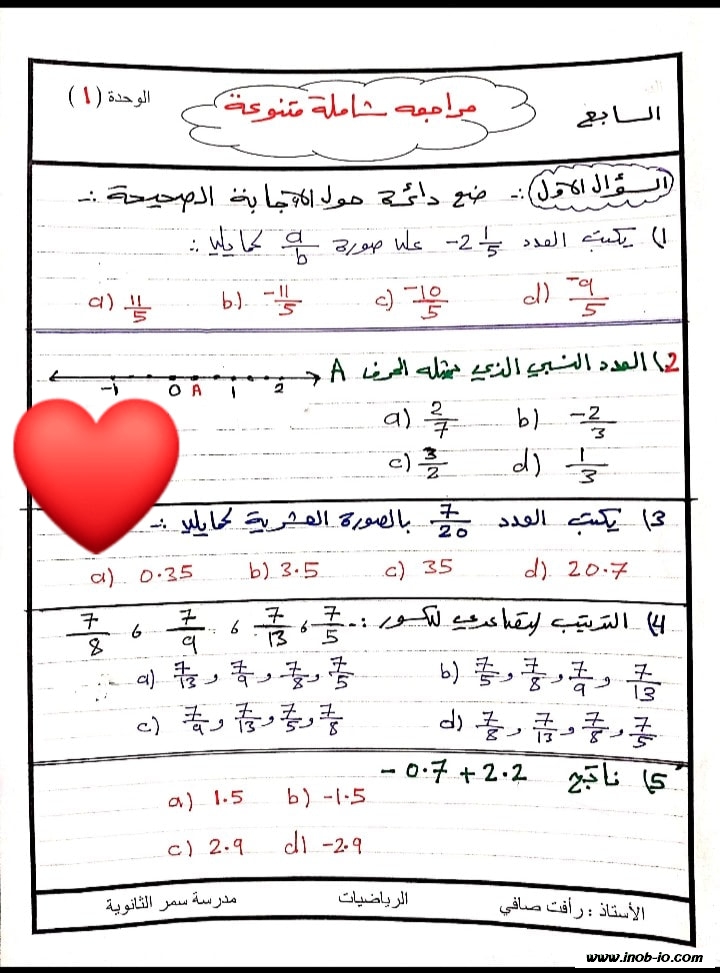 السابع
مراجعه شاملة متنوعة
الوحدة (1)
السؤال الأول :- ضع دائرة حول الإجابة الصحيحة :-
1) يكتب العدد -2 1/5 على صورة a/b كما يلي :-
a) 11/5 b) -11/5 c) -10/5 d) -9/5
2) العدد النسبي الذي يمثله الحرف A
-1 0 A 1 2
a) 2/7 b) -2/3
c) 3/2 d) 1/3
3) يكتب العدد 7/20 بالصورة العشرية كما يلي :-
a) 0.35 b) 3.5 c) 35 d) 20.7
4) الترتيب التصاعدي للكسور :- 7/5 ، 7/13 ، 7/9 ، 7/8
a) 7/13 , 7/9 , 7/8 , 7/5 b) 7/5 , 7/8 , 7/9 , 7/13
c) 7/9 , 7/13 , 7/5 , 7/8 d) 7/8 , 7/13 , 7/8 , 7/5
5) ناتج -0.7 + 2.2
a) 1.5 b) -1.5
c) 2.9 d) -2.9
الأستاذ : رأفت صافي الرياضيات مدرسة سمر الثانوية
www.inob-io.com